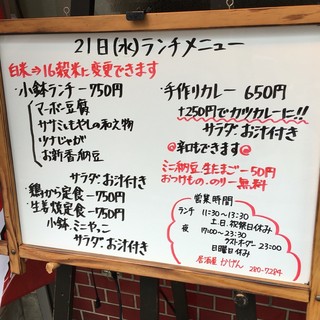 21日(水)ランチメニュー
白米⇒16穀米に変更できます
・小鉢ランチー750円
マーボー豆腐
ササミともやしの和え物
ツナじゃが
お新香・納豆
サラダ・お汁付き
・鶏から定食ー750円
・生姜焼定食ー750円
小鉢・ミニやっこ
サラダ・お汁付き
・手作りカレー 650円
+250円でカツカレーに!!
サラダ・お汁付き
@辛口もできます@
ミニ納豆・生たまごー50円
おつけもの・のりー無料
営業時間
ランチ 11:30~13:30
土.日.祝祭日休み
夜 17:00~23:30
ラストオーダー 23:00
日曜日休み
居酒屋 かげん 280-7284